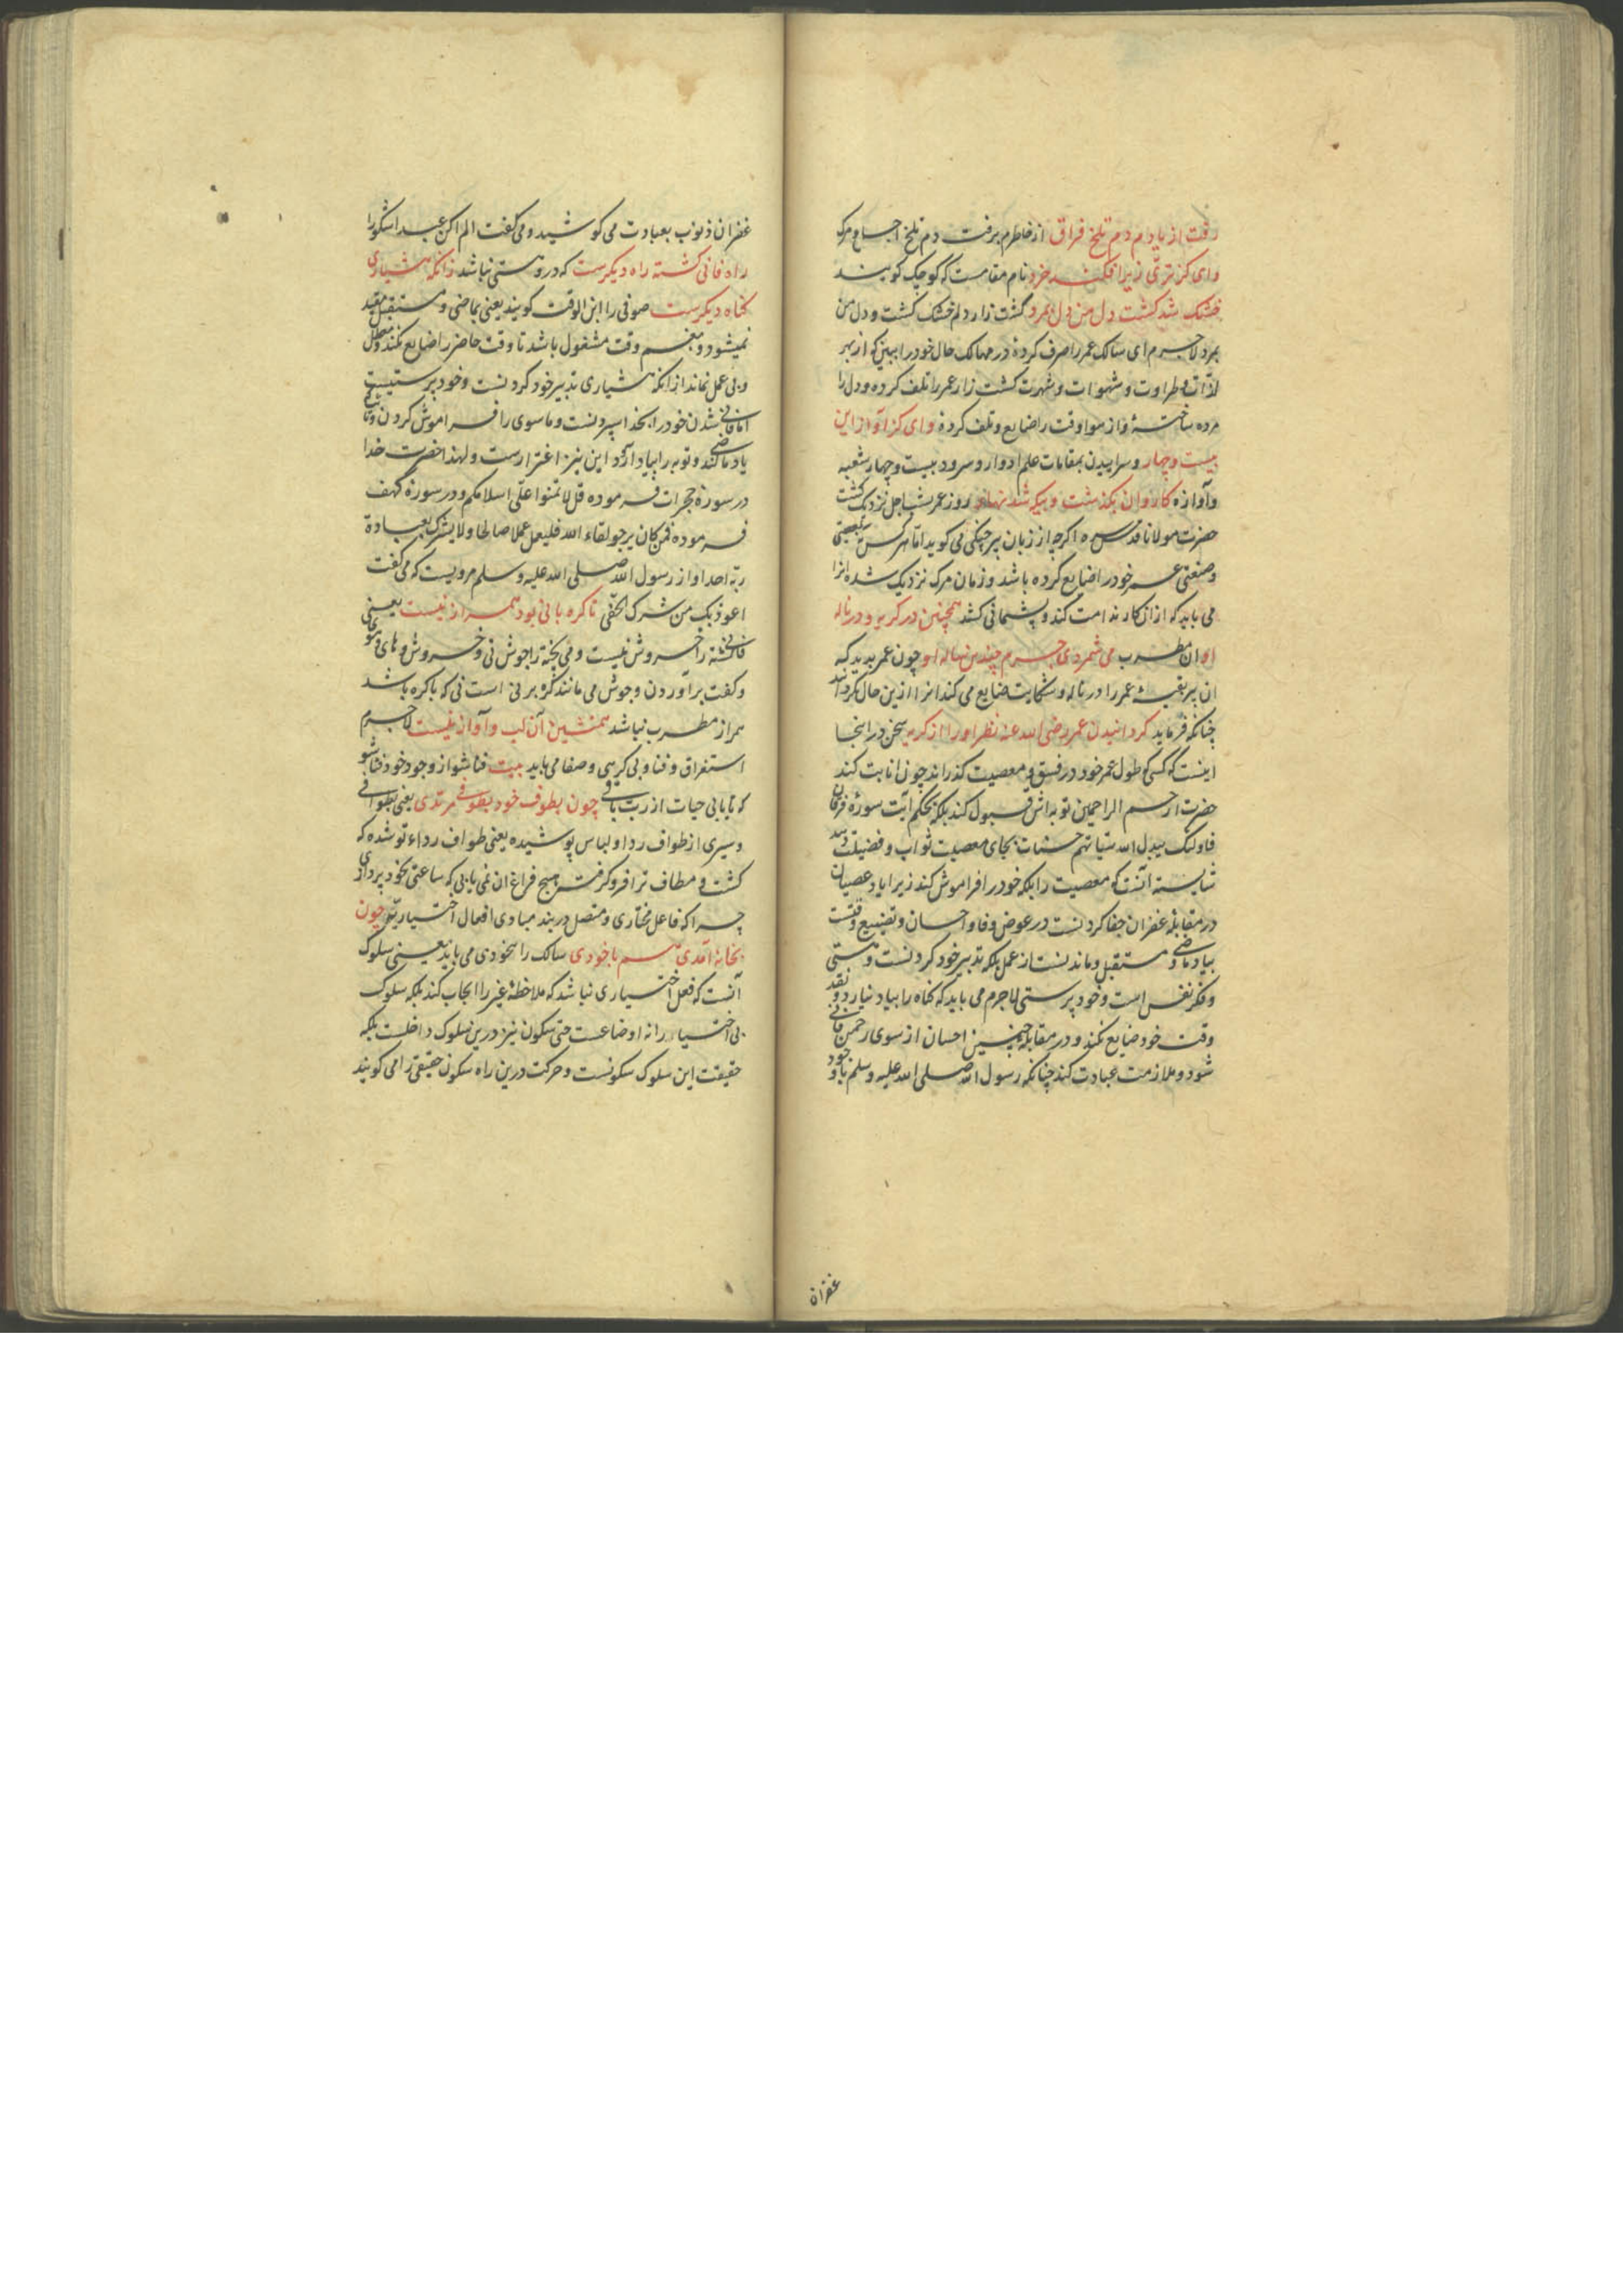 رفت از یادم دم تلخ فراق از خاطرم برفت دم تلخ اجماع و مرک
وای کز تری زیرافکند خرد نام مقامست که کوچک کویند
خشک شد کشت دل من دل بمرد کشت زار دلم خشک کشت و دل من
بمرد لاجرم ای سالک عمر را صرف کرده در مهالک حال خود را ببین که از بهر
لذات و طراوت و شهوات و شهرت کشت زار عمر را تلف کرده و دل را
مرده ساخته و از هوا وقت را ضایع و تلف کرده وای کز آواز این
بیست و چهار و سراییدن بمقامات علم ادوار و سرود بیست و چهار شعبه
و آوازه کاروان بکذشت و بیکه شد نهار روز عمر بشب اجل نزدیک کشت
حضرت مولانا قدس سره اکرچه از زبان پیر چنکی می کوید اما هر کس که
و صنعتی عمر خود را ضایع کرده باشد و زمان مرک نزدیک شده انرا
می باید که از ان کار ندامت کند و پشمانی کشد همچنین در کریه و در ناله
او ان مطرب می شمردی جرم چندین ساله او چون عمر بدید که
ان پیر بقیه عمر را در ناله و شکایت ضایع می کند انرا ازین حال بکرداند
چنانکه فرماید کردانیدن عمر رضی الله عنه نظر او را از کریه سخن در اینجا
اینست که کسی که طول عمر خود در فسق و معصیت کذراند چون انابت کند
حضرت ارحم الراحمین توبه اش قبول کند بلکه بحکم آیت سورۀ فرقان
فاولئک یبدل الله سیئاتهم حسنات بجای معصیت ثواب و فضیلت رسد
شایسته آنست که معصیت را بلکه خود را فراموش کند زیرا یاد عصیان
در مقابلۀ غفران جفا کردنست در عوض وفا و احسان و تضییع وقتست
بیاد ماضی و مستقبل و ماندنست از عمل بلکه تدبیر خود کردنست و مستی
و فکر نفس است و خود پرستی لاجرم می باید که کناه را بیاد نیارد و نقد
وقت خود ضایع نکند و در مقابلۀ چنین احسان از سوی رحمن فانی
شود و ملازمت عبادت کند چنانکه رسول الله صلی الله علیه و سلم با وجود
غفران
غفران ذنوب بعبادت می کوشید و می کفت الم اکن عبدا شکورا
راه فانی کشته راه دیکرست که درو مستی نباشد زانکه هشیاری
کناه دیکرست صوفی را ابن الوقت کویند یعنی بماضی و مستقبل مقید
نمیشود و بغم وقت مشغول باشد تا وقت حاضر را ضایع نکند و معطل
و بی عمل نماند از انکه هشیاری تدبیر خود کردنست و خود پرستیست
اما فانی شدن خود را بخدا سپردنست و ماسوی را فراموش کردن
یاد ماضی کند و توبه را بیاد آرد این نیز اغترارست و لهذا حضرت خدا
در سورۀ حجرات فرموده قل لا تمنوا علی اسلامکم و در سورۀ کهف
فرموده فمن کان یرجو لقاء الله فلیعمل عملا صالحا و لا یشرک بعبادة
ربه احدا و از رسول الله صلی الله علیه و سلم مرویست که می کفت
اعوذ بک من شرک الخفی تا کره با نی بود همراز نیست یعنی
فانی کشته را خروش نیست و می پخته را جوش نی و خروش و های و هوی
و کفت بر آوردن و جوش می مانند کره بر نی است نی که با کره باشد
همراز مطرب نباشد همنشین آن لب و آواز نیست لاجرم
استغراق و فنا و بی کرهی و صفا می باید بیت فنا شو از وجود خود فنا شو
که تا یابی حیات از رب باقی چون بطوف خود بطوفی مرتدی یعنی بطوافی
و سیری از طواف ردا و لباس پوشیده یعنی طواف رداء تو شده که
کشت و مطاف ترا فرو کرفت هیچ فراغ ان نمی یابی که ساعتی بخود پردازی
چرا که فاعل مختاری و متصل در بند مبادی افعال اختیاریۀ چون
بخانه آمدی هم با خودی سالک را بیخودی می باید یعنی سلوک
آنست که فعل اختیاری نباشد که ملاحظۀ غیر را ایجاب کند بلکه سلوک
بی اختیار را نه اوضاعست حتی سکون نیز درین سلوک داخلست بلکه
حقیقت این سلوک سکونست و حرکت درین راه سکون حقیقی را می کویند